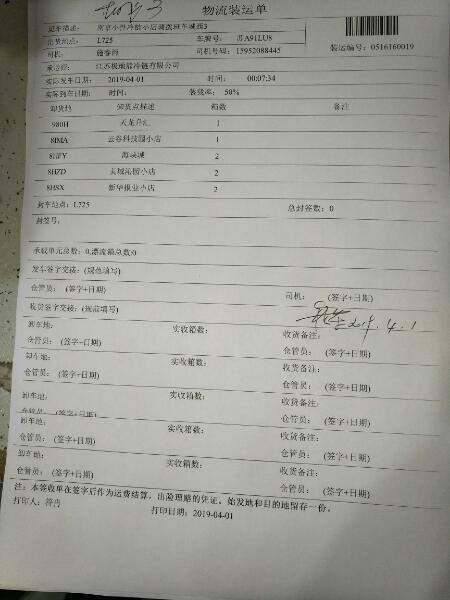 物流装运单
班车描述: 南京小件冷链小店调拨班车城西3
出货地点: L725 车牌号: 苏A91LU8 装运编号: 0516160019
司机: 施春舟 司机号码: 15952088445
承运商: 江苏极地熊冷链有限公司
实际发车日期: 2019-04-01 时间: 00:07:34
实际到车日期: 时间: 装载率: 50%
卸货地 卸货点描述 箱数 备注
980H 天龙 1
8IMA 云谷科技园小店 1
8IFY 海峡城 2
8HZD 美城沁园小店 2
8HSX 新华报业小店 2
封车地点: L725 总封签数: 0
封签号:
承载单元总数: 0,漂流箱总数:0
发车签字交接: (规范填写)
仓管员: (签字+日期) 司机: (签字+日期)
收货签字交接: (规范填写) 2019.4.1
卸车地: 实收箱数: 收货备注:
仓管员: (签字+日期) 仓管员: (签字+日期)
卸车地: 实收箱数: 收货备注:
仓管员: (签字+日期) 仓管员: (签字+日期)
卸车地: 实收箱数: 收货备注:
仓管员: (签字+日期)
仓管员: (签字+日期) 仓管员: (签字+日期)
卸车地: 实收箱数: 收货备注:
仓管员: (签字+日期) 仓管员: (签字+日期)
注: 本签收单在签字后作为运费结算, 出险理赔的凭证。始发地和目的地留存一份。
打印人: 符冉 打印日期: 2019-04-01